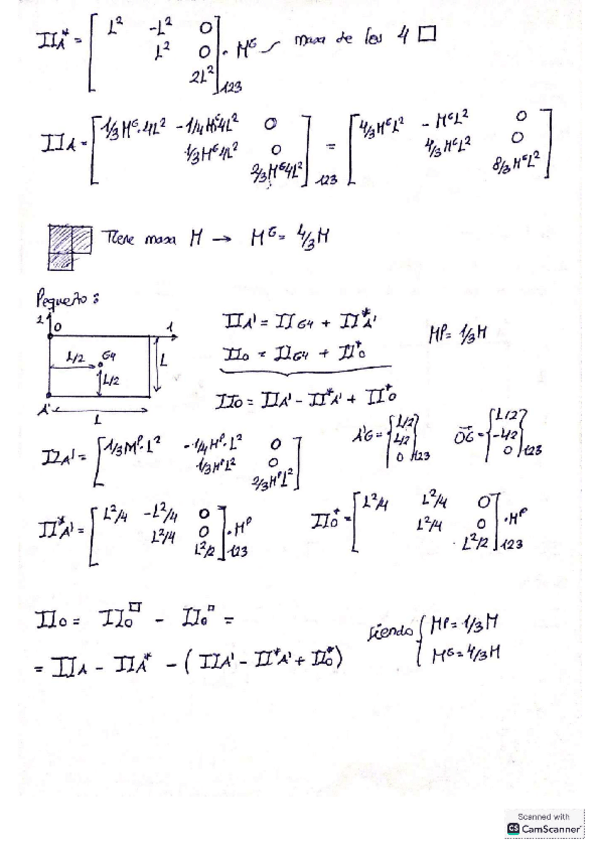 II_A* = [ L² -L² 0 ; L² 0 ; 2L² ]₁₂₃ · M^G masa de los 4 □
II_A = [ 1/3 M^G·4L² -1/4 M^G 4L² 0 ; 1/3 M^G 4L² 0 ; 2/3 M^G 4L² ]₁₂₃ = [ 4/3 M^G L² - M^G L² 0 ; 4/3 M^G L² 0 ; 8/3 M^G L² ]
Tiene masa M → M^G = 4/3 M
Pequeño:
2 O 1
L/2 G4 L
L/2
A' L
II_A' = II_G4 + II*_A'
II_O = II_G4 + II*_O
M^P = 1/3 M
II_O = II_A' - II*_A' + II*_O
II_A' = [ 1/3 M^P·L² -1/4 M^P·L² 0 ; 1/3 M^P L² 0 ; 2/3 M^P L² ]
A'G = { L/2 ; L/2 ; 0 }₁₂₃ OG = { L/2 ; -L/2 ; 0 }₁₂₃
II*_A' = [ L²/4 -L²/4 0 ; L²/4 0 ; L²/2 ]₁₂₃ · M^P
II_O* = [ L²/4 L²/4 0 ; L²/4 0 ; L²/2 ]₁₂₃ · M^P
II_O = II_O^□ - II_O^□ =
= II_A - II_A* - ( II_A' - II*_A' + II_O* )
siendo { M^P = 1/3 M
M^G = 4/3 M
Scanned with
CS CamScanner